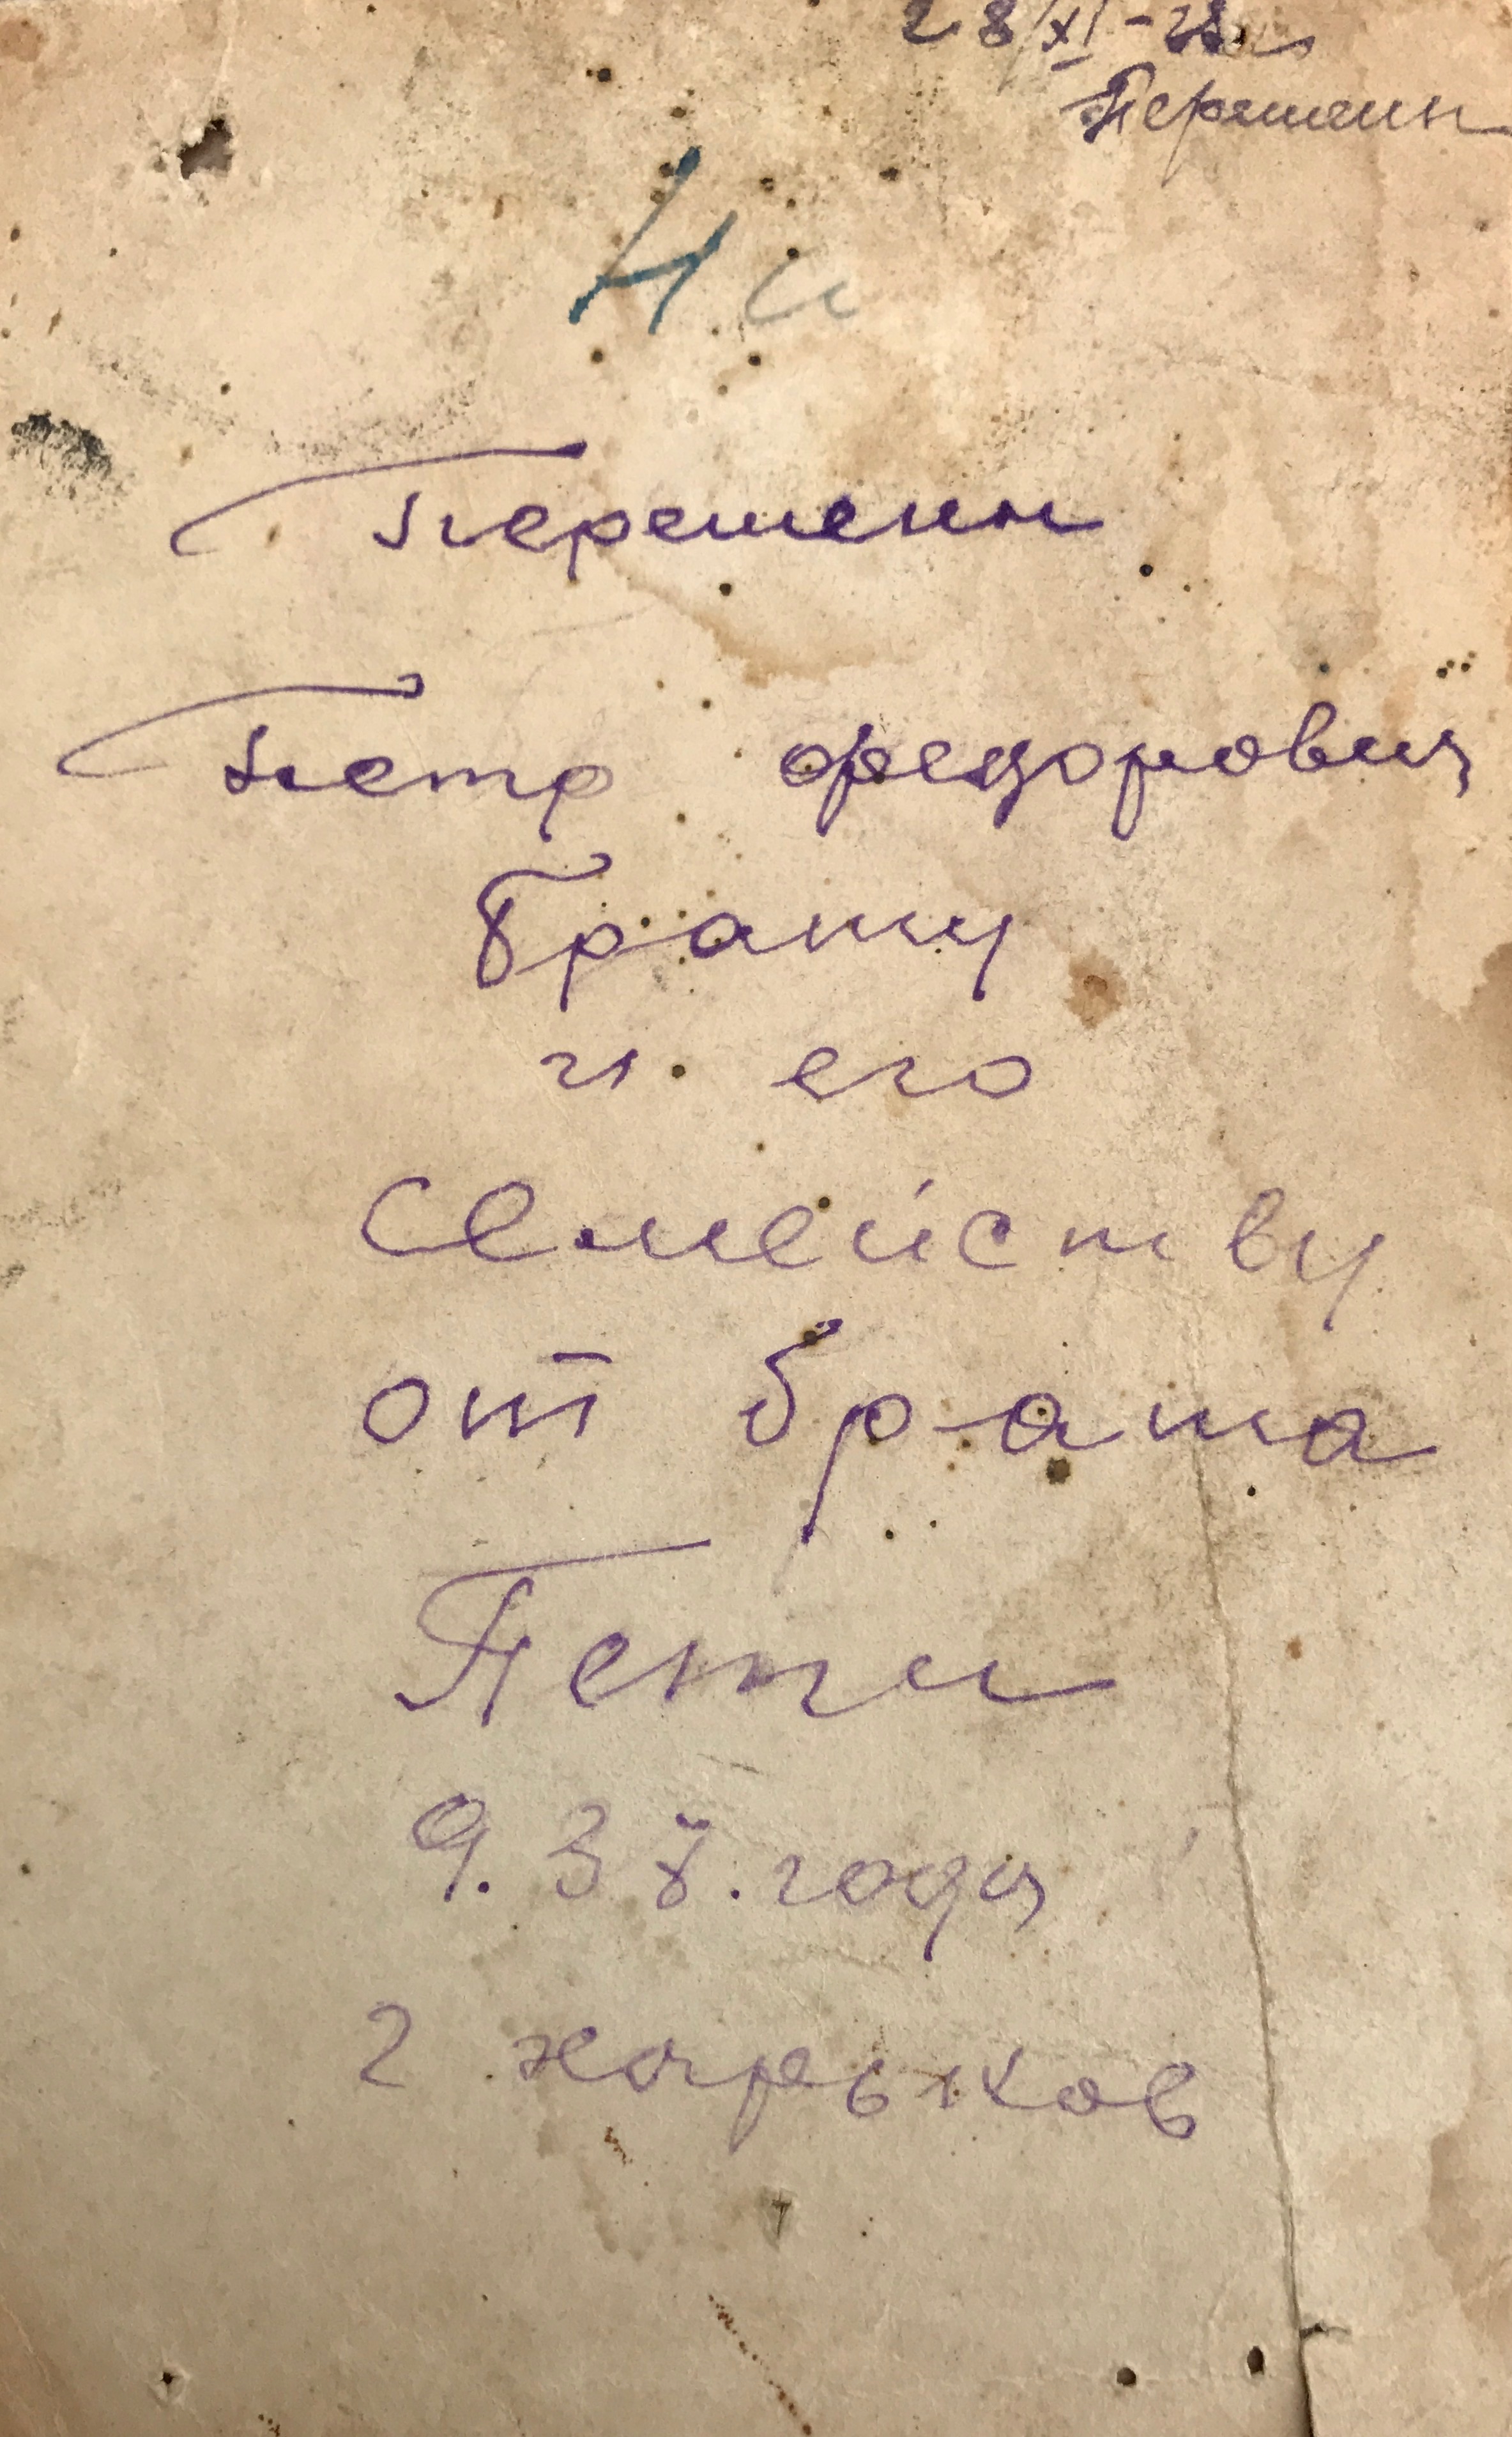 28/XI-28
Перешеин
Перешеин
Петр федорович
Брату
и его
семейству
от брата
Пети
9.38.года
г харьков